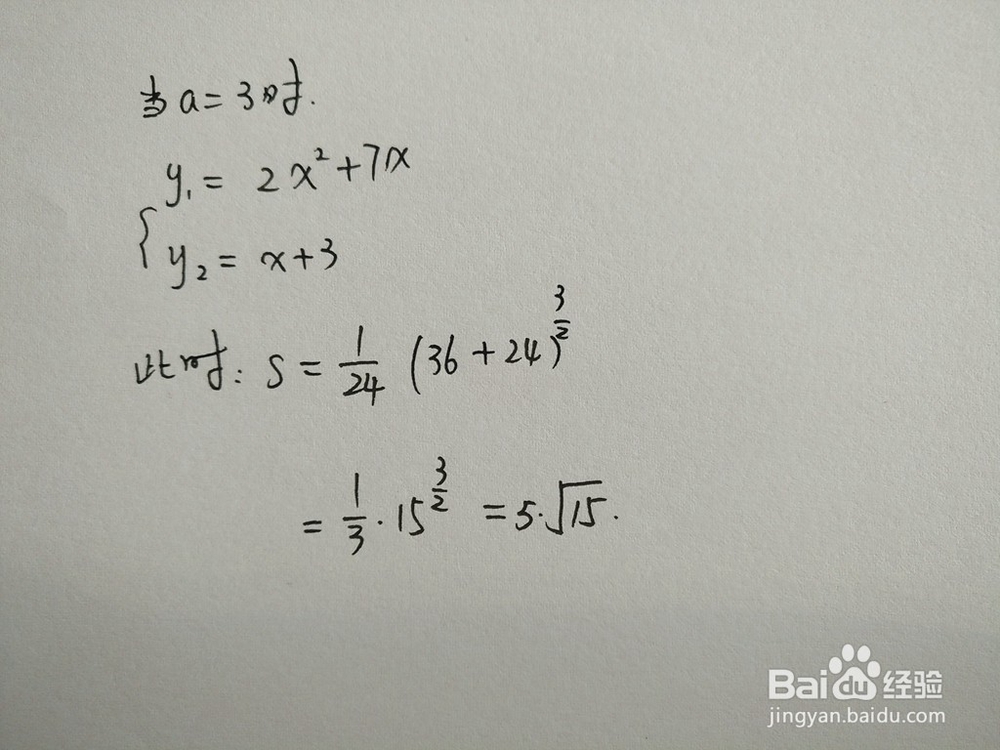 当a=3时.
y₁= 2x²+7x
{ y₂= x+3
此时: S = 1/24 (36+24)^(3/2)
= 1/3 · 15^(3/2) = 5·√15.
Baidu 经验
jingyan.baidu.com